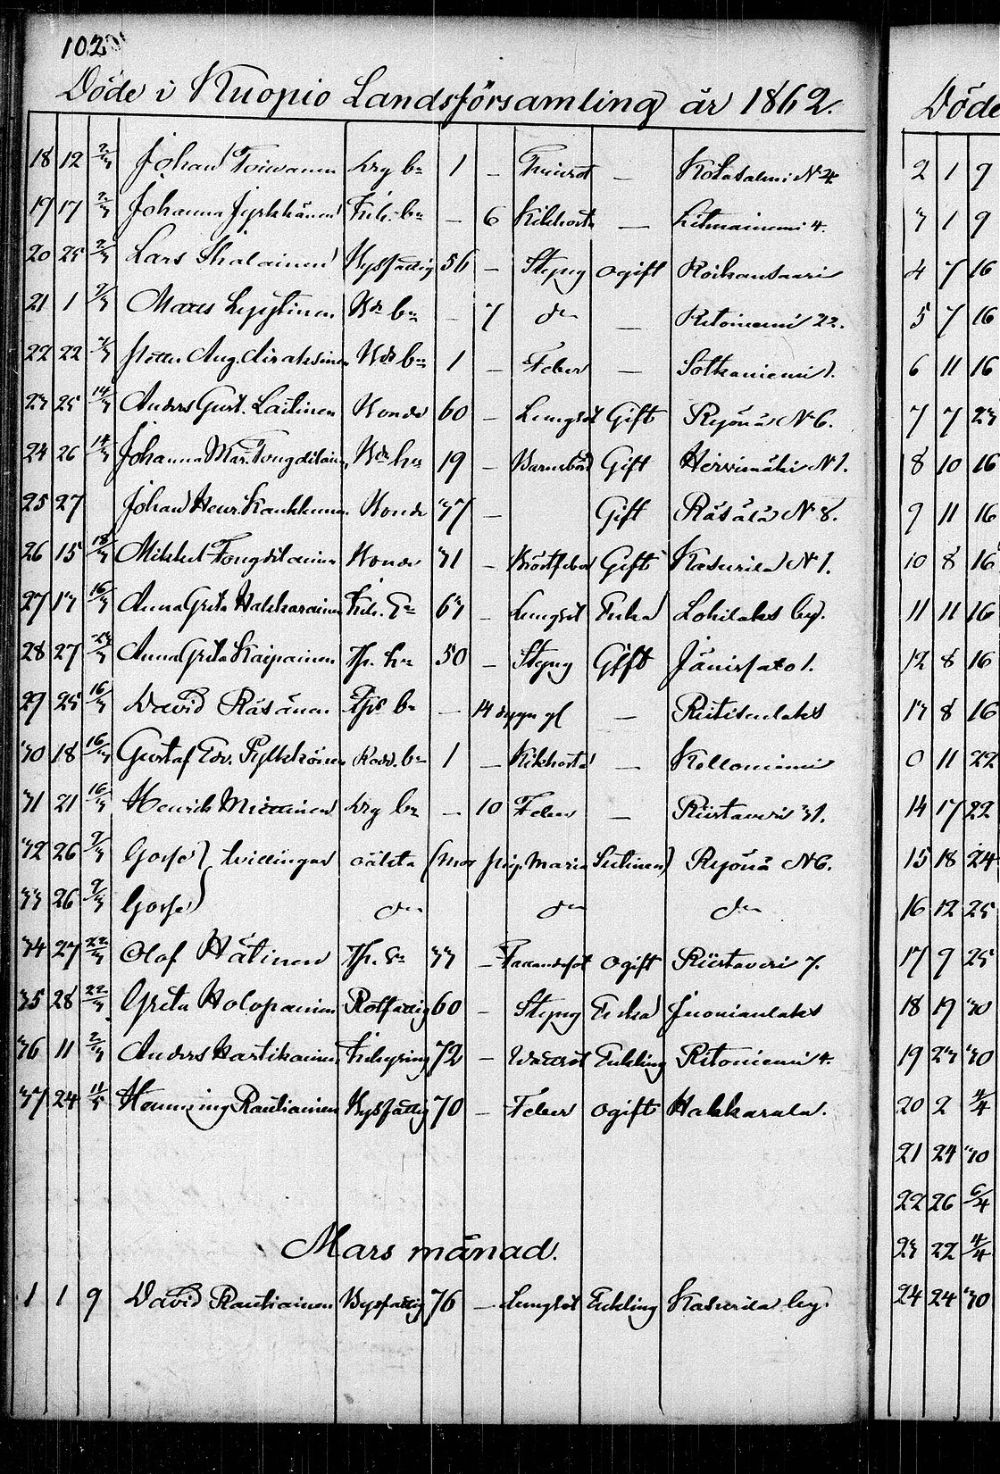 102
Döde i Kuopio Landsförsamling år 1862.
18 12 2/3 Johan Toivanen Krg bn 1 – – Kotasalmi N 4.
19 17 2/3 Johanna Jyrkkänen Inh. bn – 6 Kikhosta – 4.
20 25 2/3 Lars Ihalainen Hysfattig 56 – Styng ogift Roikansaari
21 1 2/3 Maus Lyytinen Bde bn – 7 do – Ritoniemi 22.
22 22 Aug. Airaksinen Bde bn 1 – Feber – Sotkaniemi 1.
23 25 14/3 Anders Gust. Laitinen Bonde 60 – Lungsot Gift Ryönä N 6.
24 26 14/3 Johanna Mar. Tengvilainen Bde hu 19 – Barnsbörd Gift Hirvimäki N 1.
25 27 Johan Henr. Bonde 37 – Gift Räsälä N 8.
26 15 Mikkel Bonde 31 – Bröstfeber Gift Kasurila N 1.
27 13 16/3 Anna Greta Hakkarainen Inh. E 63 – Lungsot Enka Lohilaks by.
28 27 23/3 Anna Greta Kaipainen Tp. hu 50 – Styng Gift Jänissalo 1.
29 25 16/3 David Räsänen bn – 14 dygn gl – Riitisenlaks
30 18 16/3 Gustaf Edv. Pylkkönen bn 1 – Kikhosta – Kolloniemi
31 21 16/3 Henrik Miettinen Krg bn – 10 Feber – Riistaveri 31.
32 26 9/3 Gosse } tvillingar oäkta (mor pig. Maria Sutinen) Ryönä N 6.
33 26 9/3 Gosse } do do do
34 27 22/3 Olof Hätinen Tp. 33 – ogift Riistaveri 7.
35 28 22/3 Greta Holopainen Rotfattig 60 – Styng Enka Juonionlaks
36 11 2/3 Anders Kartikainen Inhysing 72 – Enkling Ritoniemi 4.
37 24 11/5 Henning Rautiainen Hysfattig 70 – Feber ogift Hakkarala.
Mars månad.
1 1 9 David Rautiainen Bysfattig 76 – Lungsot Enkling Kasurila by.
Döde
2 1 9
3 1 9
4 7 16
5 7 16
6 11 16
7 7 23
8 10 16
9 11 16
10 8 16
11 11 16
12 8 16
13 8 16
0 11 22
14 17 22
15 18 24
16 12 25
17 9 25
18 19 30
19 23 30
20 2 4/4
21 24 30
22 26 6/4
23 22 4/4
24 24 30